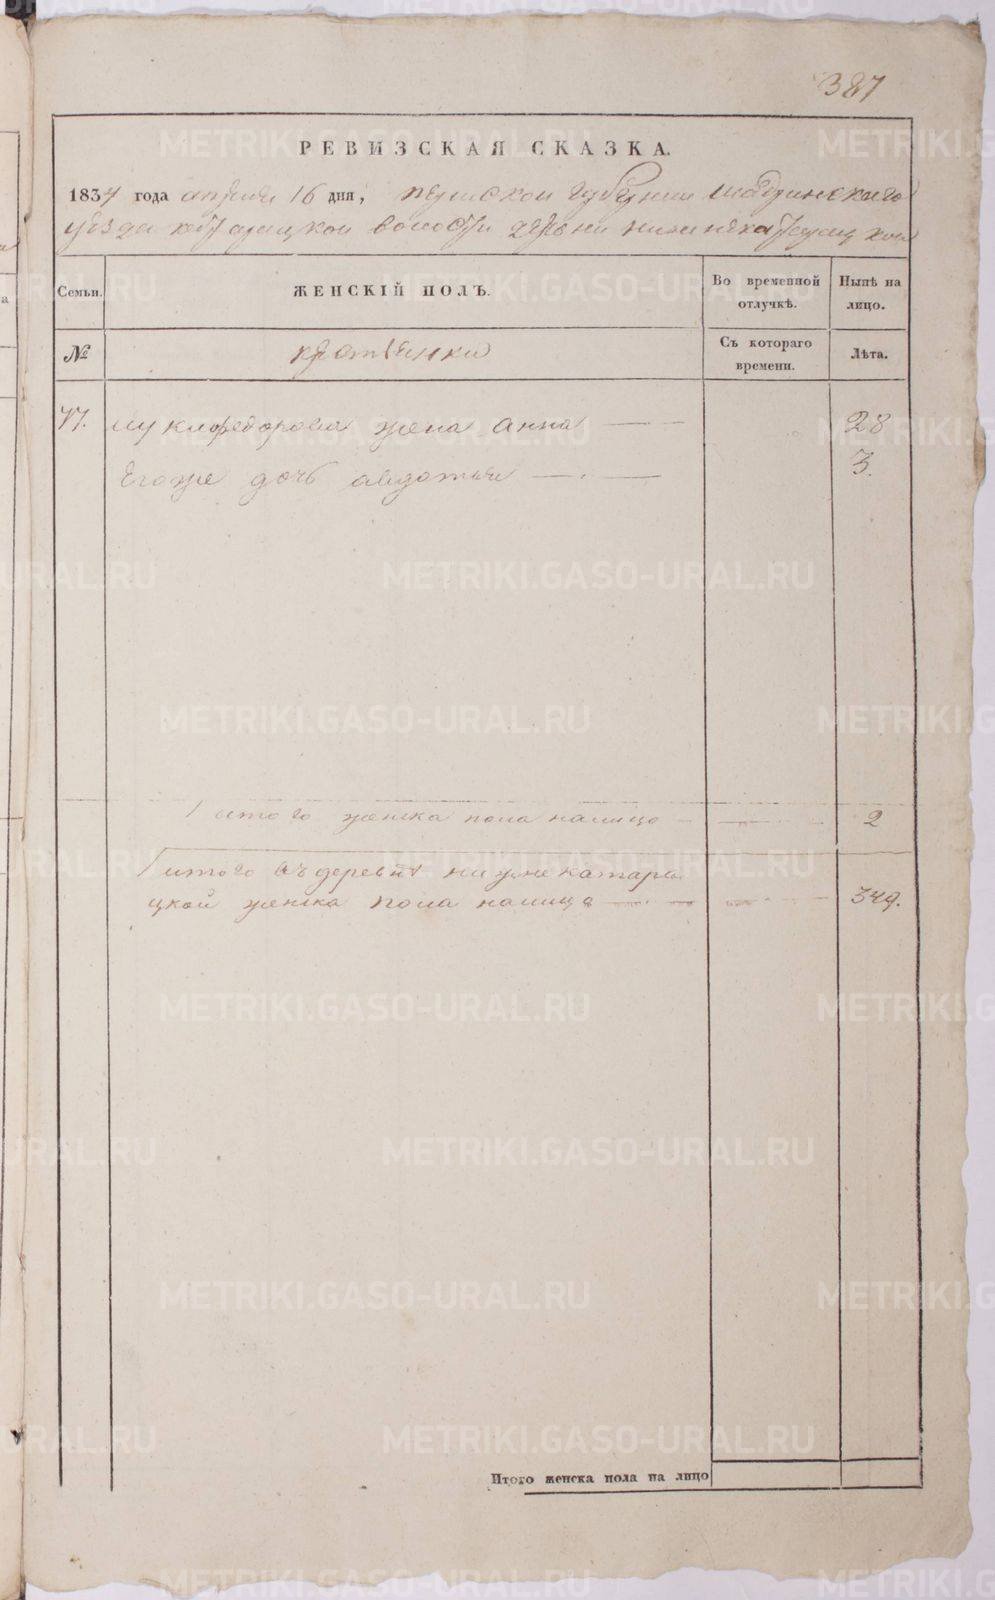 387
РЕВИЗСКАЯ СКАЗКА.
1834 года апреля 16 дня, пермской губернии шадринскаго
уезда катарацкой волости деревни нижнекатарацкой
Семьи. ЖЕНСКІЙ ПОЛЪ. Во временной отлучкѣ. Нынѣ на лицо.
№ крестьянки Съ котораго времени. Лѣта.
77. луки федорова жена анна 28
Его же дочь авдотья 3.
итого женска пола налицо 2
итого въ деревнѣ нижнекатара
цкой женска пола налицо 349.
Итого женска пола на лицо
METRIKI.GASO-URAL.RU